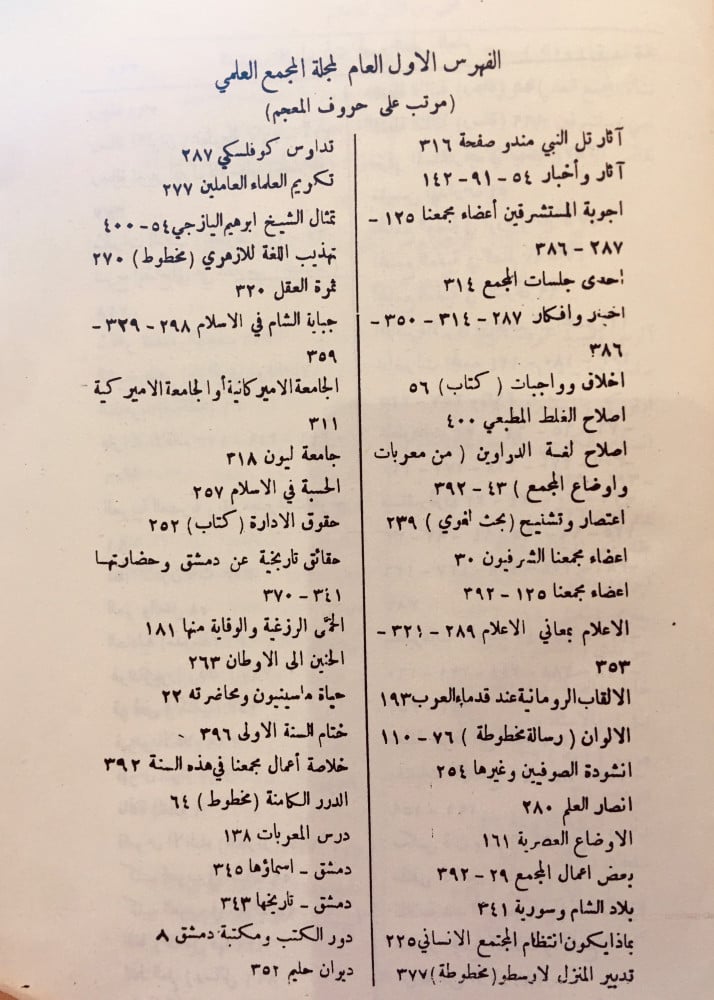 الفهرس الاول العام لمجلة المجمع العلمي
(مرتب على حروف المعجم)
آثار تل النبي مندو صفحة ٣١٦
آثار وأخبار ٥٤ - ٩١ - ١٤٢
اجوبة المستشرقين أعضاء مجمعنا ١٢٥ -
٢٨٧ - ٣٨٦
احدى جلسات المجمع ٣١٤
اخبار وافكار ٢٨٧ - ٣١٤ - ٣٥٠ -
٣٨٦
اخلاق وواجبات ( كتاب ) ٥٦
اصلاح الغلط المطبعي ٤٠٠
اصلاح لغة الدواوين ( من معربات
واوضاع المجمع ) ٤٣ - ٣٩٢
اعتصار وتشنيح (بحث لغوي ) ٢٣٩
اعضاء مجمعنا الشرفيون ٣٠
اعضاء مجمعنا ١٢٥ - ٣٩٢
الاعلام بمعاني الاعلام ٢٨٩ - ٣٢١ -
٣٥٣
الالقاب الرومانية عند قدماء العرب ١٩٣
الالوان ( رسالة مخطوطة ) ٧٦ - ١١٠
انشودة الصوفيين وغيرها ٢٥٤
انصار العلم ٢٨٠
الاوضاع العصرية ١٦١
بعض اعمال المجمع ٢٩ - ٣٩٢
بلاد الشام وسورية ٣٤١
بماذا يكون انتظام المجتمع الانساني ٢٢٥
تدبير المنزل لارسطو (مخطوطة) ٣٧٧
تداوس كوفلسكي ٢٨٧
تكريم العلماء العاملين ٢٧٧
تمثال الشيخ ابرهيم اليازجي ٥٤ - ٤٠٠
تهذيب اللغة للازهري (مخطوط) ٢٧٠
ثمرة العقل ٣٢٠
جباية الشام في الاسلام ٢٩٨ - ٣٢٩ -
٣٥٩
الجامعة الاميركانية أو الجامعة الاميركية
٣١١
جامعة ليون ٣١٨
الحسبة في الاسلام ٢٥٧
حقوق الادارة (كتاب) ٢٥٢
حقائق تاريخية عن دمشق وحضارتها
٣٤١ - ٣٧٠
الحمَّى الرزغية والوقاية منها ١٨١
الحنين الى الاوطان ٢٦٣
حياة ماسينيون ومحاضرته ٢٢
ختام السنة الاولى ٣٩٦
خلاصة أعمال مجمعنا في هذه السنة ٣٩٢
الدرر الكامنة (مخطوط) ٦٤
درس المعربات ١٣٨
دمشق - اسماؤها ٣٤٥
دمشق - تاريخها ٣٤٣
دور الكتب ومكتبة دمشق ٨
ديوان حليم ٣٥٢